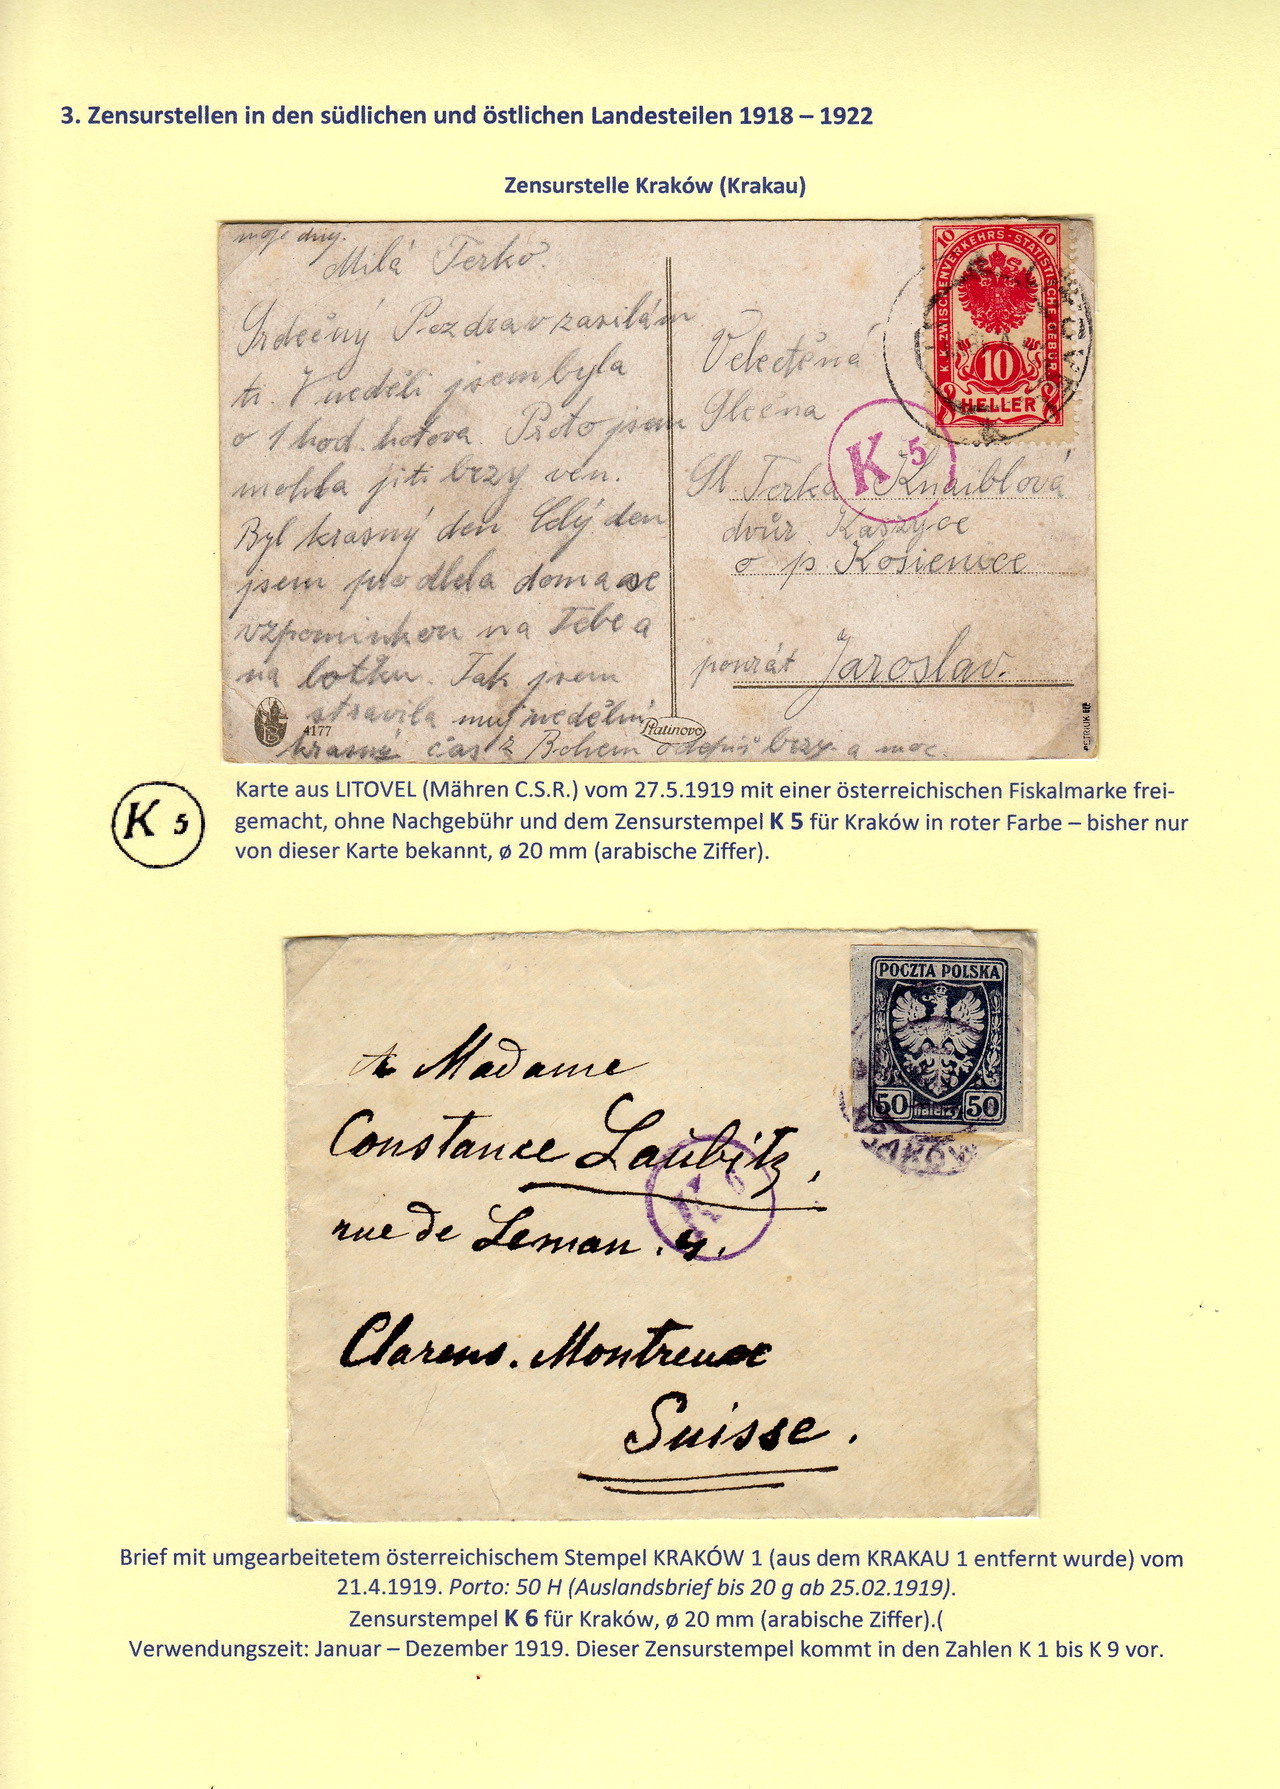 3. Zensurstellen in den südlichen und östlichen Landesteilen 1918 – 1922
Zensurstelle Kraków (Krakau)
moje dny.
Milá Terko.
Srdečný Pozdrav zasílám
ti. V neděli jsem byla
o 1 hod. hotova. Proto jsem
mohla jíti brzy ven.
Byl krasný den Celý den
jsem prodlela doma se
vzpomínkou na Tebe a
na Tak jsem
stravila muj nedělní
krasný čas z Bohem odepiš brzy a moc.
4177
Platinovo
10 10
K.K. ZWISCHENVERKEHRS-STATISTISCHE GEBÜHR
10
HELLER
K 5
Velectěná
Slečna
Sl. Terka Knaiblová
dvůr Kaszyce
o p Kosienice
Jaroslav.
K 5
Karte aus LITOVEL (Mähren C.S.R.) vom 27.5.1919 mit einer österreichischen Fiskalmarke frei-
gemacht, ohne Nachgebühr und dem Zensurstempel K 5 für Kraków in roter Farbe – bisher nur
von dieser Karte bekannt, ø 20 mm (arabische Ziffer).
POCZTA POLSKA
50 halerzy 50
KRAKÓW
Madame
Constance Laubitz,
rue de Leman . 4.
K 6
Clarens. Montreux
Suisse.
Brief mit umgearbeitetem österreichischem Stempel KRAKÓW 1 (aus dem KRAKAU 1 entfernt wurde) vom
21.4.1919. Porto: 50 H (Auslandsbrief bis 20 g ab 25.02.1919).
Zensurstempel K 6 für Kraków, ø 20 mm (arabische Ziffer).(
Verwendungszeit: Januar – Dezember 1919. Dieser Zensurstempel kommt in den Zahlen K 1 bis K 9 vor.